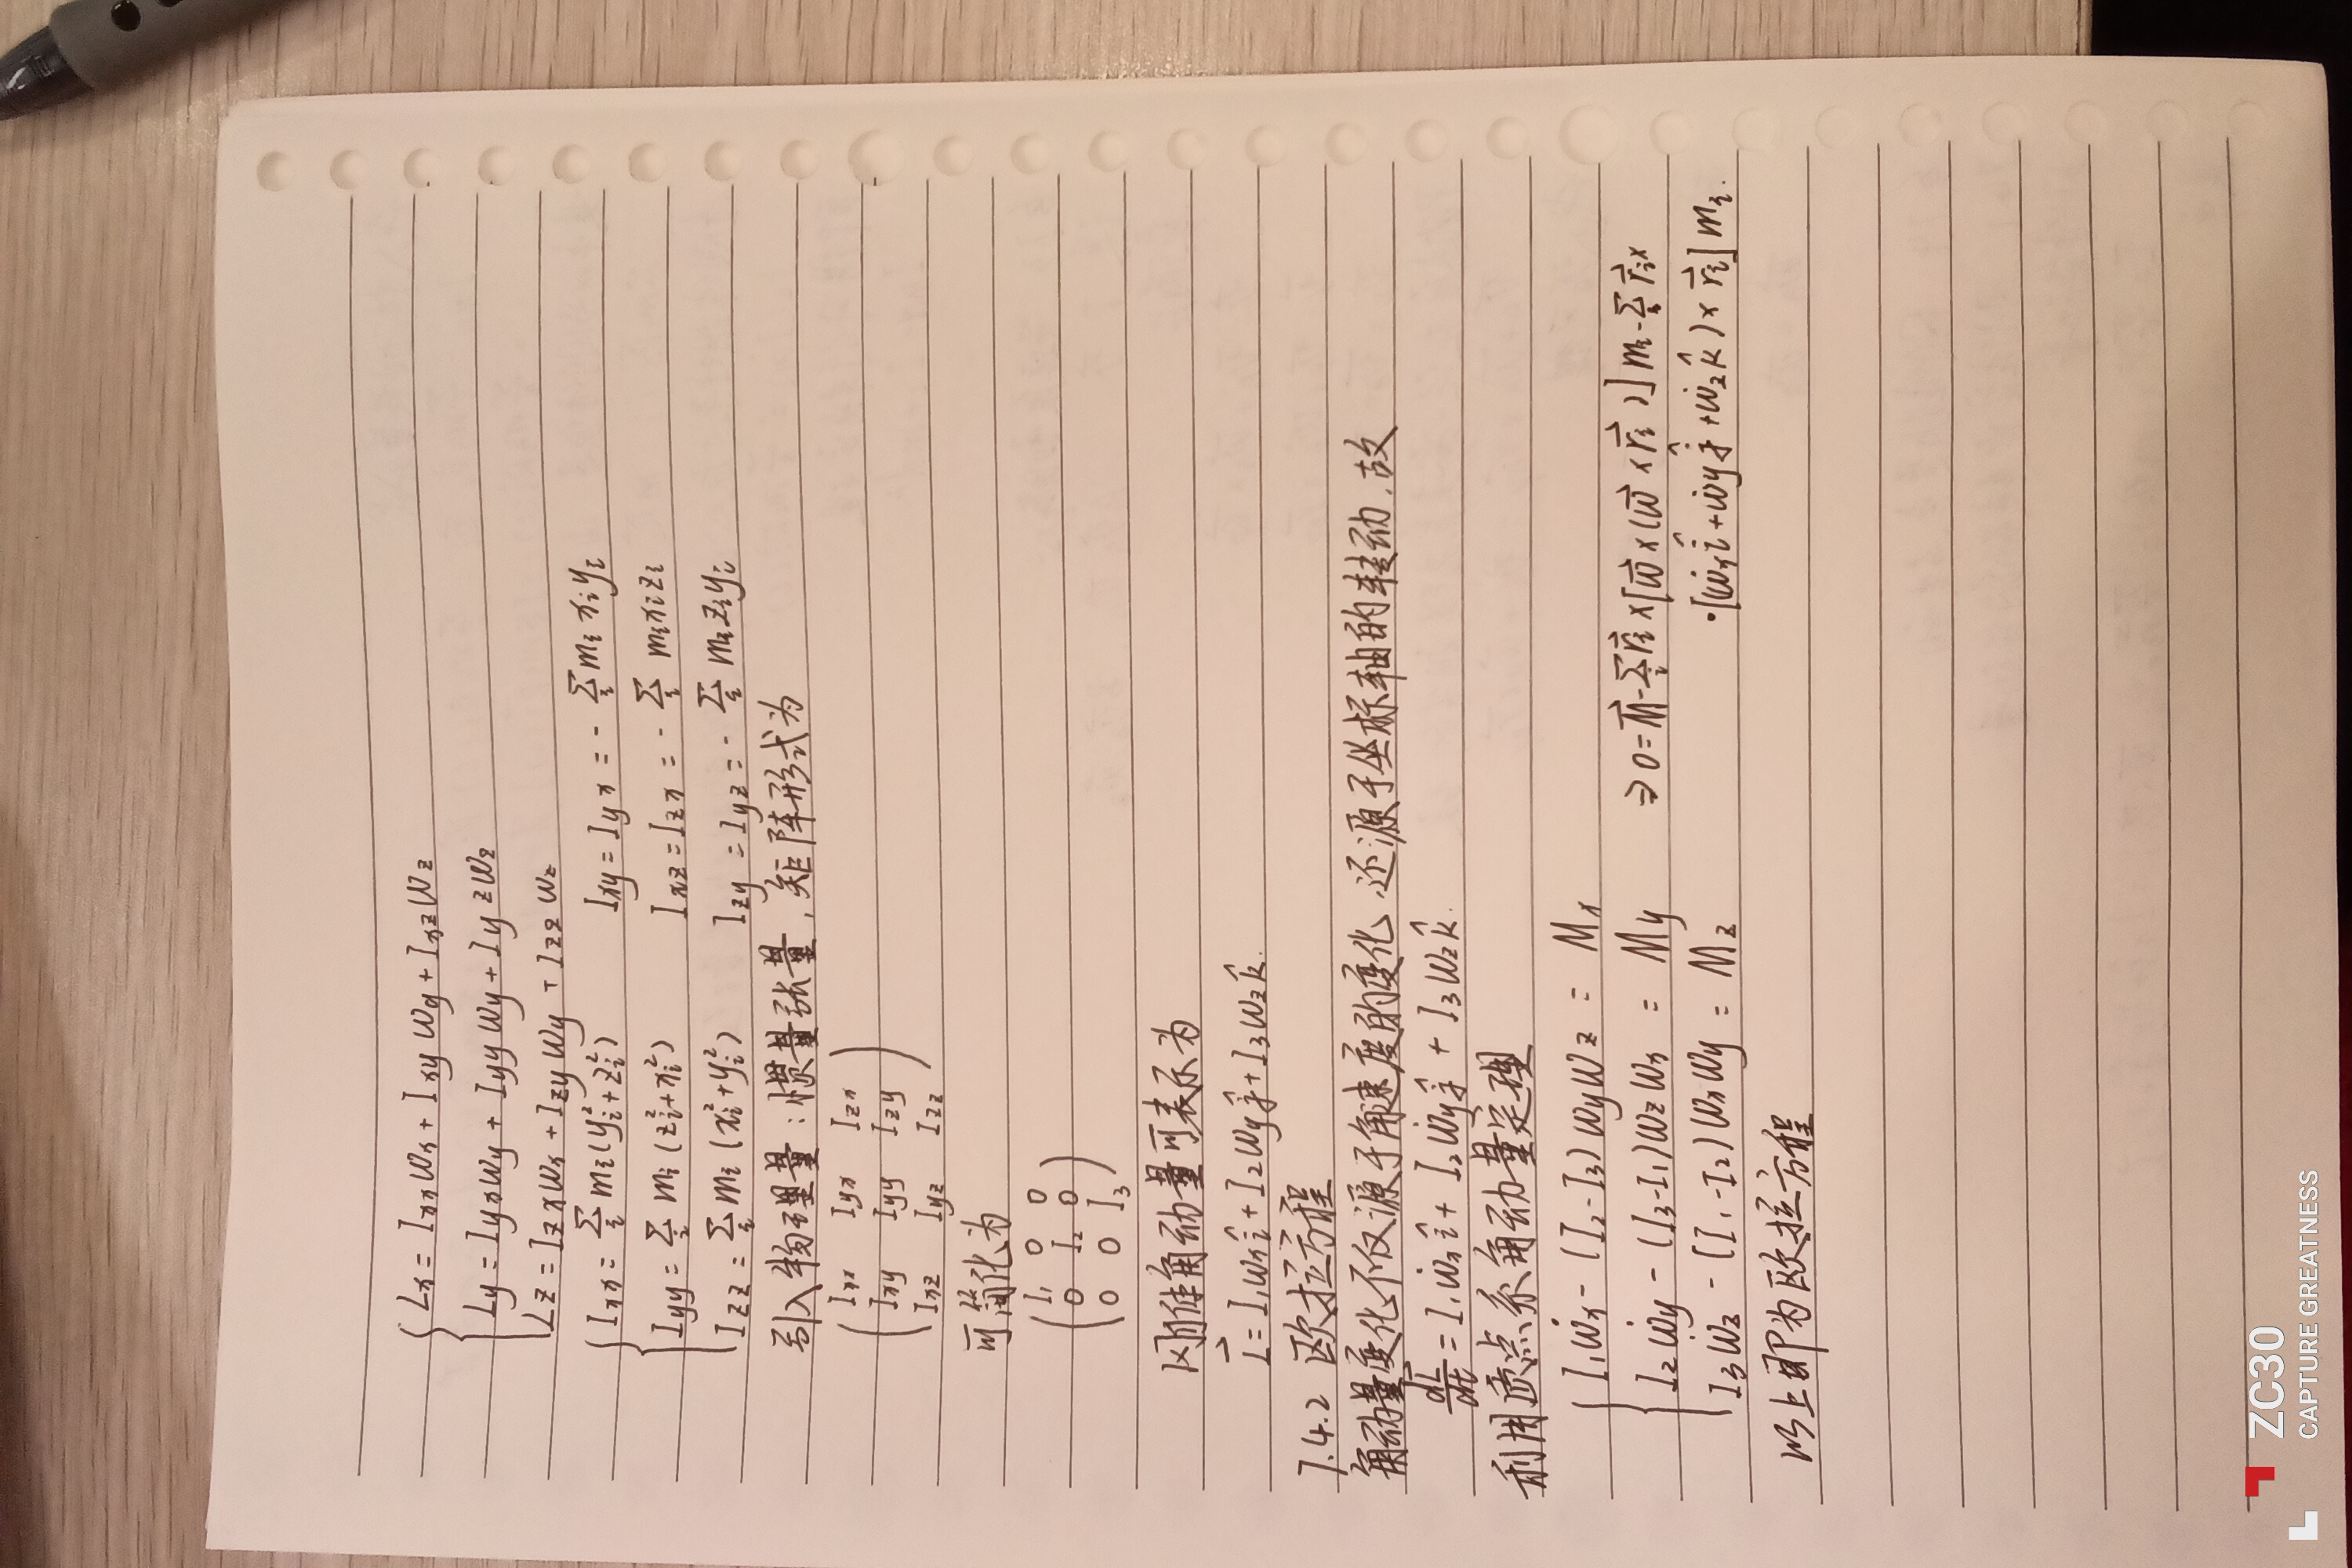 Lx = Ixxωx + Ixyωy + Ixzωz
Ly = Iyxωy + Iyyωy + Iyzωz
Lz = Izxωx + Izyωy + Izzωz
Ixx = Σi mi(yi²+zi²) Ixy = Iyx = - Σi mi xiyi
Iyy = Σi mi(zi²+xi²) Ixz = Izx = - Σi mixizi
Izz = Σi mi(xi²+yi²) Izy = Iyz = - Σi miziyi
引入物理量:惯量张量,矩阵形式为
Ixx Iyx Izx
Ixy Iyy Izy
Ixz Iyz Izz
可简化为
I₁ 0 0
0 I₂ 0
0 0 I₃
刚体角动量可表示为
L⃗ = I₁ωxî + I₂ωyĵ + I₃ωzk̂.
7.4.2 欧拉方程
角动量变化不仅源于角速度的变化,还源于坐标轴的转动,故
dL⃗/dt = I₁ω̇xî + I₂ω̇yĵ + I₃ω̇zk̂.
利用质点系角动量定理
I₁ω̇x - (I₂-I₃)ωyωz = Mx
I₂ω̇y - (I₃-I₁)ωzωx = My ⇒ 0 = M⃗ - Σi r⃗i×[ω⃗×(ω⃗×r⃗i)]mi - Σi r⃗i×
I₃ω̇z - (I₁-I₂)ωxωy = Mz ·[(ω̇xî+ω̇yĵ+ω̇zk̂)×r⃗i]mi.
以上即为欧拉方程
ZC30
CAPTURE GREATNESS